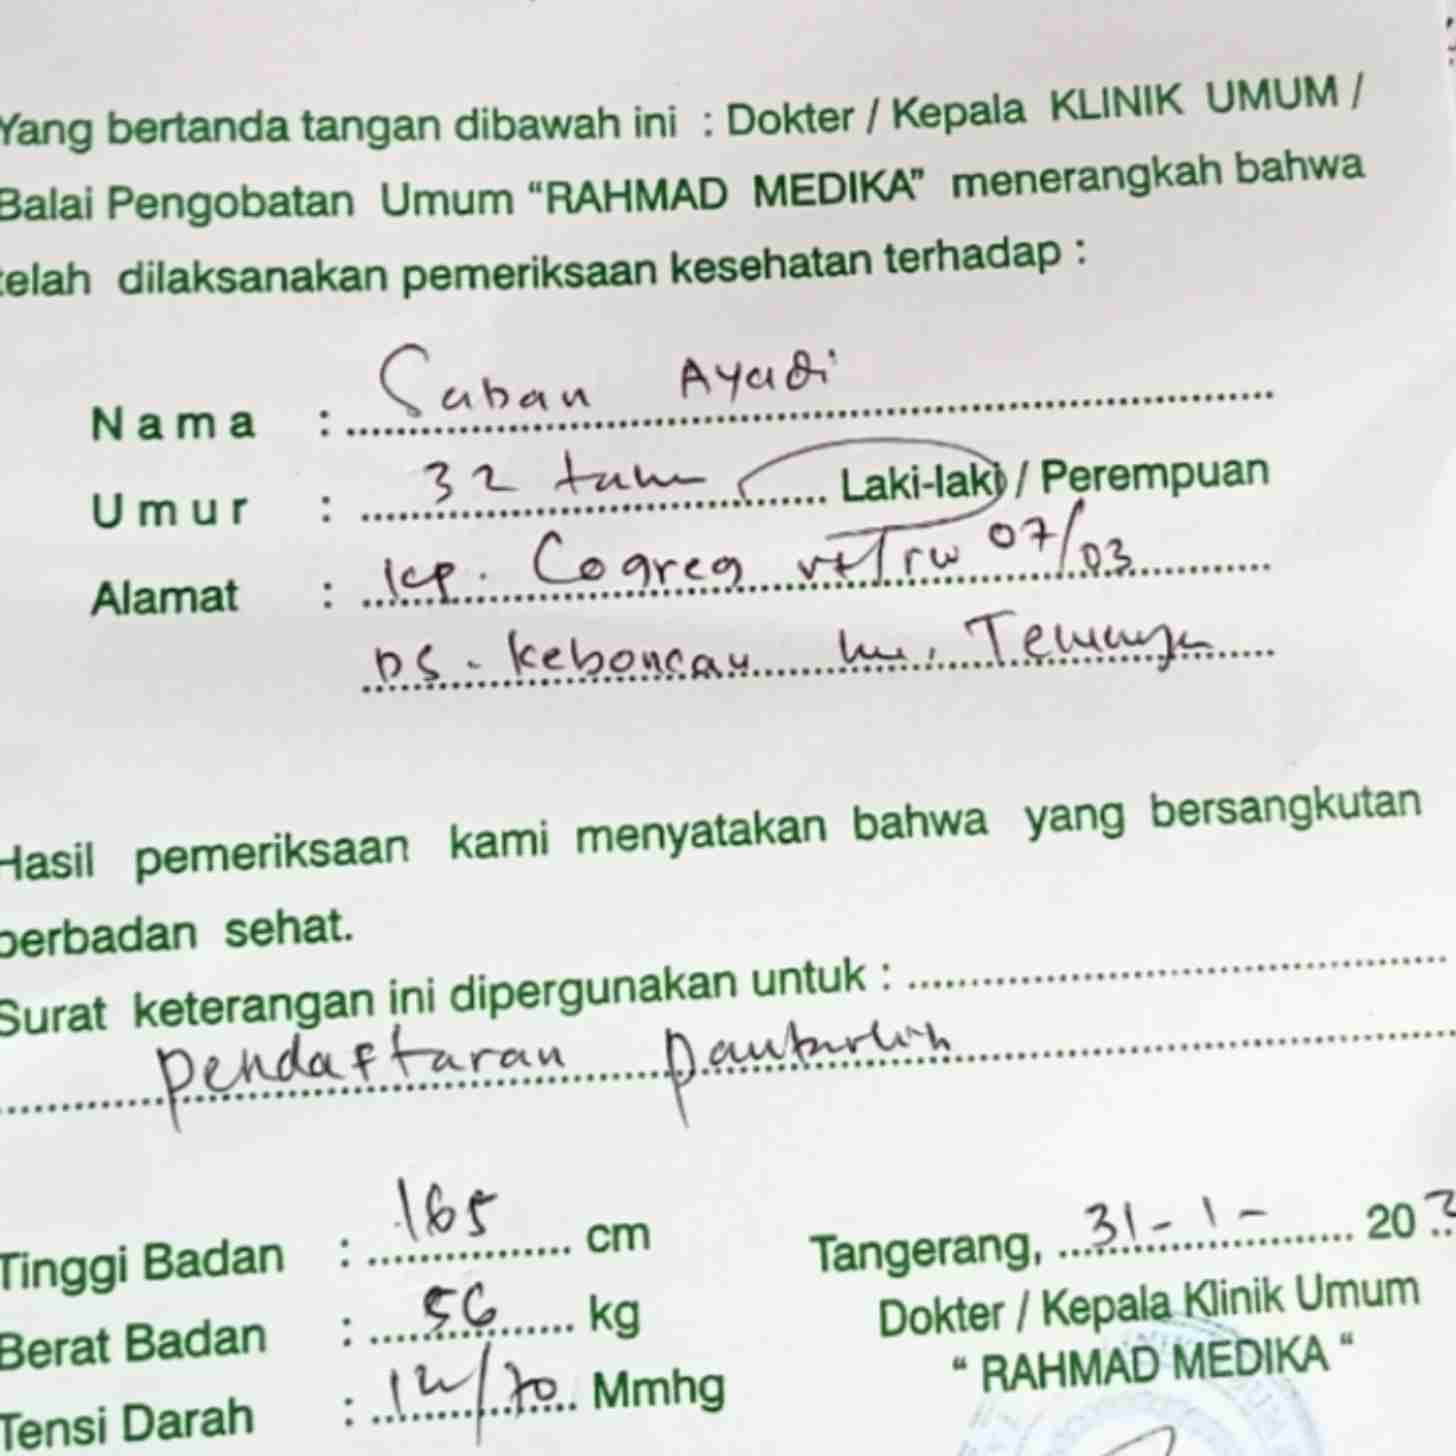 Yang bertanda tangan dibawah ini : Dokter / Kepala KLINIK UMUM /
Balai Pengobatan Umum “RAHMAD MEDIKA” menerangkah bahwa
telah dilaksanakan pemeriksaan kesehatan terhadap :
Nama : Saban Ayadi
Umur : 32 tahun Laki-laki / Perempuan
Alamat : kp. Cogreg rt/rw 07/03
DS. Keboncau
Hasil pemeriksaan kami menyatakan bahwa yang bersangkutan
berbadan sehat.
Surat keterangan ini dipergunakan untuk :
pendaftaran pantarlih
Tinggi Badan : 165 cm
Berat Badan : 56 kg
Tensi Darah : Mmhg
Tangerang, 31-1- 20
Dokter / Kepala Klinik Umum
“ RAHMAD MEDIKA “